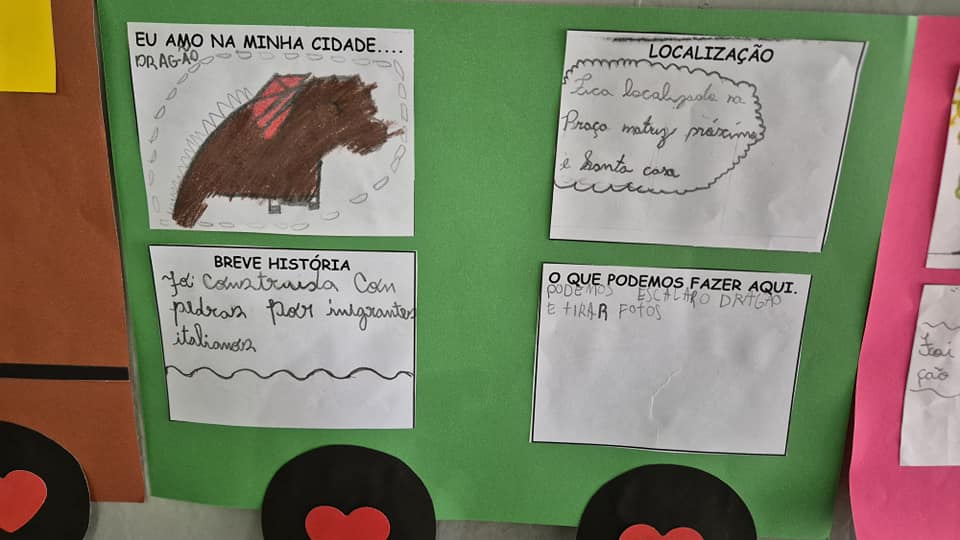 EU AMO NA MINHA CIDADE....
DRAGÃO
LOCALIZAÇÃO
Fica localizada na
Praça matruz próxima
e Santa casa
BREVE HISTÓRIA
Foi construida Con
pedras por inigrantes
italianos
O QUE PODEMOS FAZER AQUI.
PODEMOS ESCALARO DRAGÃO
E TIRAR FOTOS
Foi
ção